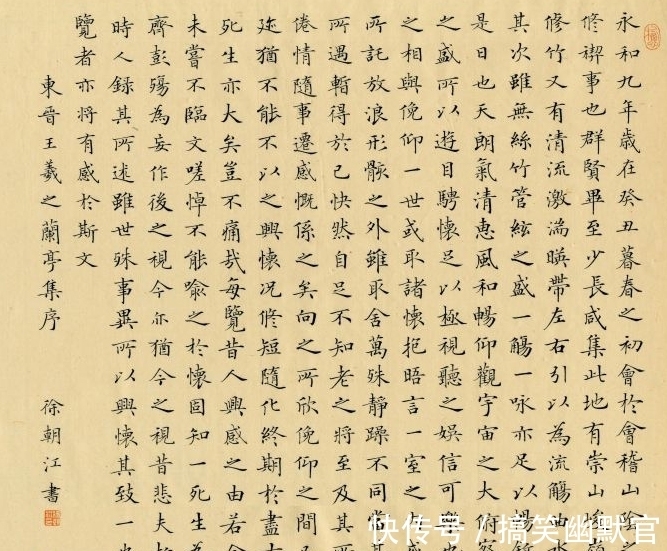 永和九年歲在癸丑暮春之初會於會稽山陰之
修禊事也群賢畢至少長咸集此地有崇山峻嶺
修竹又有清流激湍暎帶左右引以為流觴曲水
其次雖無絲竹管絃之盛一觴一咏亦足以暢敘
是日也天朗氣清惠風和暢仰觀宇宙之大俯
之盛所以遊目騁懷足以極視聽之娛信可樂也
之相與俛仰一世或取諸懷抱晤言一室之
所託放浪形骸之外雖取舍萬殊靜躁不同當其
所遇暫得於己快然自足不知老之將至及其所
倦情隨事遷感慨係之矣向之所欣俛仰之間
跡猶不能不以之興懷況修短隨化終期於盡古
死生亦大矣豈不痛哉每覽昔人興感之由若合
未嘗不臨文嗟悼不能喻之於懷固知一死生為
齊彭殤為妄作後之視今亦猶今之視昔悲夫
時人錄其所述雖世殊事異所以興懷其致一也
覽者亦將有感於斯文
東晉王羲之蘭亭集序 徐朝江書
快传号 / 搞笑幽默官